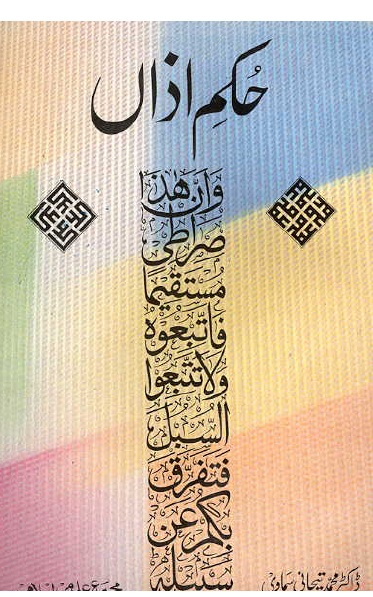 حُکمِ اذاں
وَأَنَّ هَٰذَا
صِرَاطِی
مُسْتَقِيمًا
فَاتَّبِعُوهُ
وَلَا تَتَّبِعُوا
السُّبُلَ
فَتَفَرَّقَ
بِكُمْ عَنْ
سَبِيلِهِ
ڈاکٹر محمد تیجانی سماوی